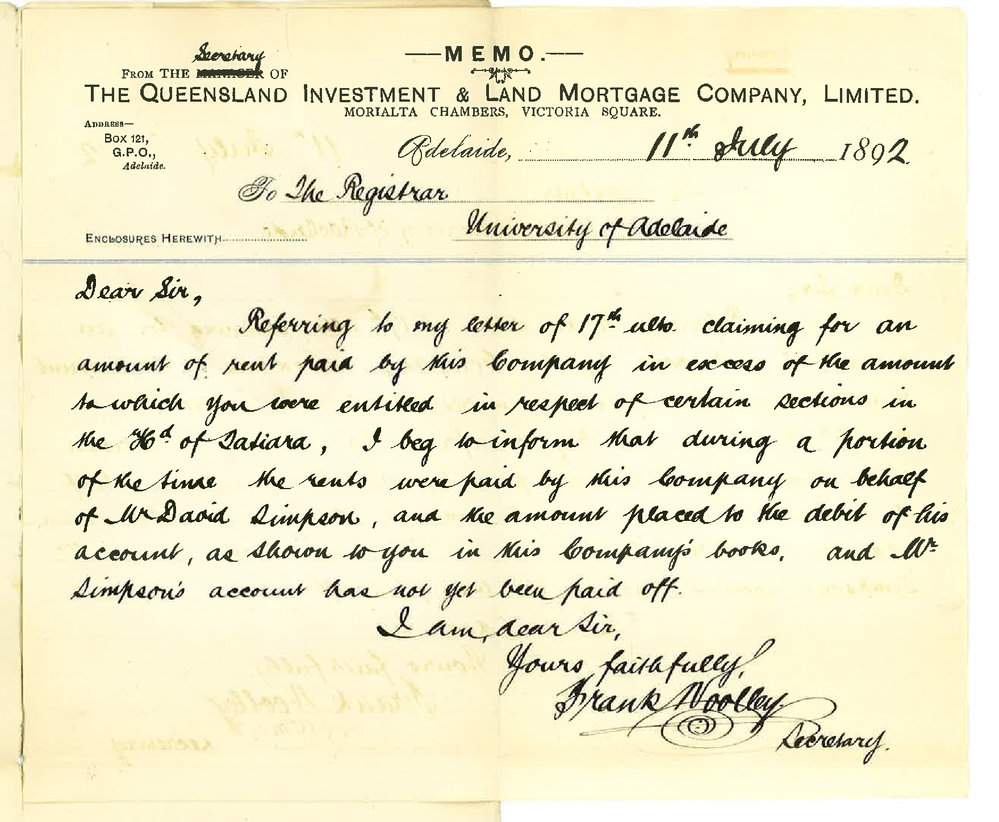 —MEMO.—
Secretary
FROM THE MANAGER OF
THE QUEENSLAND INVESTMENT & LAND MORTGAGE COMPANY, LIMITED.
MORIALTA CHAMBERS, VICTORIA SQUARE.
ADDRESS—
BOX 121,
G.P.O.,
Adelaide.
Adelaide, 11th July 1892.
To The Registrar
University of Adelaide
ENCLOSURES HEREWITH
Dear Sir,
Referring to my letter of 17th ulto. claiming for an
amount of rent paid by this Company in excess of the amount
to which you were entitled in respect of certain sections in
the Hd of Tatiara, I beg to inform that during a portion
of the time the rents were paid by this Company on behalf
of Mr David Simpson, and the amount placed to the debit of his
account, as shown to you in this Company's books. and Mr
Simpson's account has not yet been paid off.
I am, dear Sir,
Yours faithfully,
Frank Woolley
Secretary.